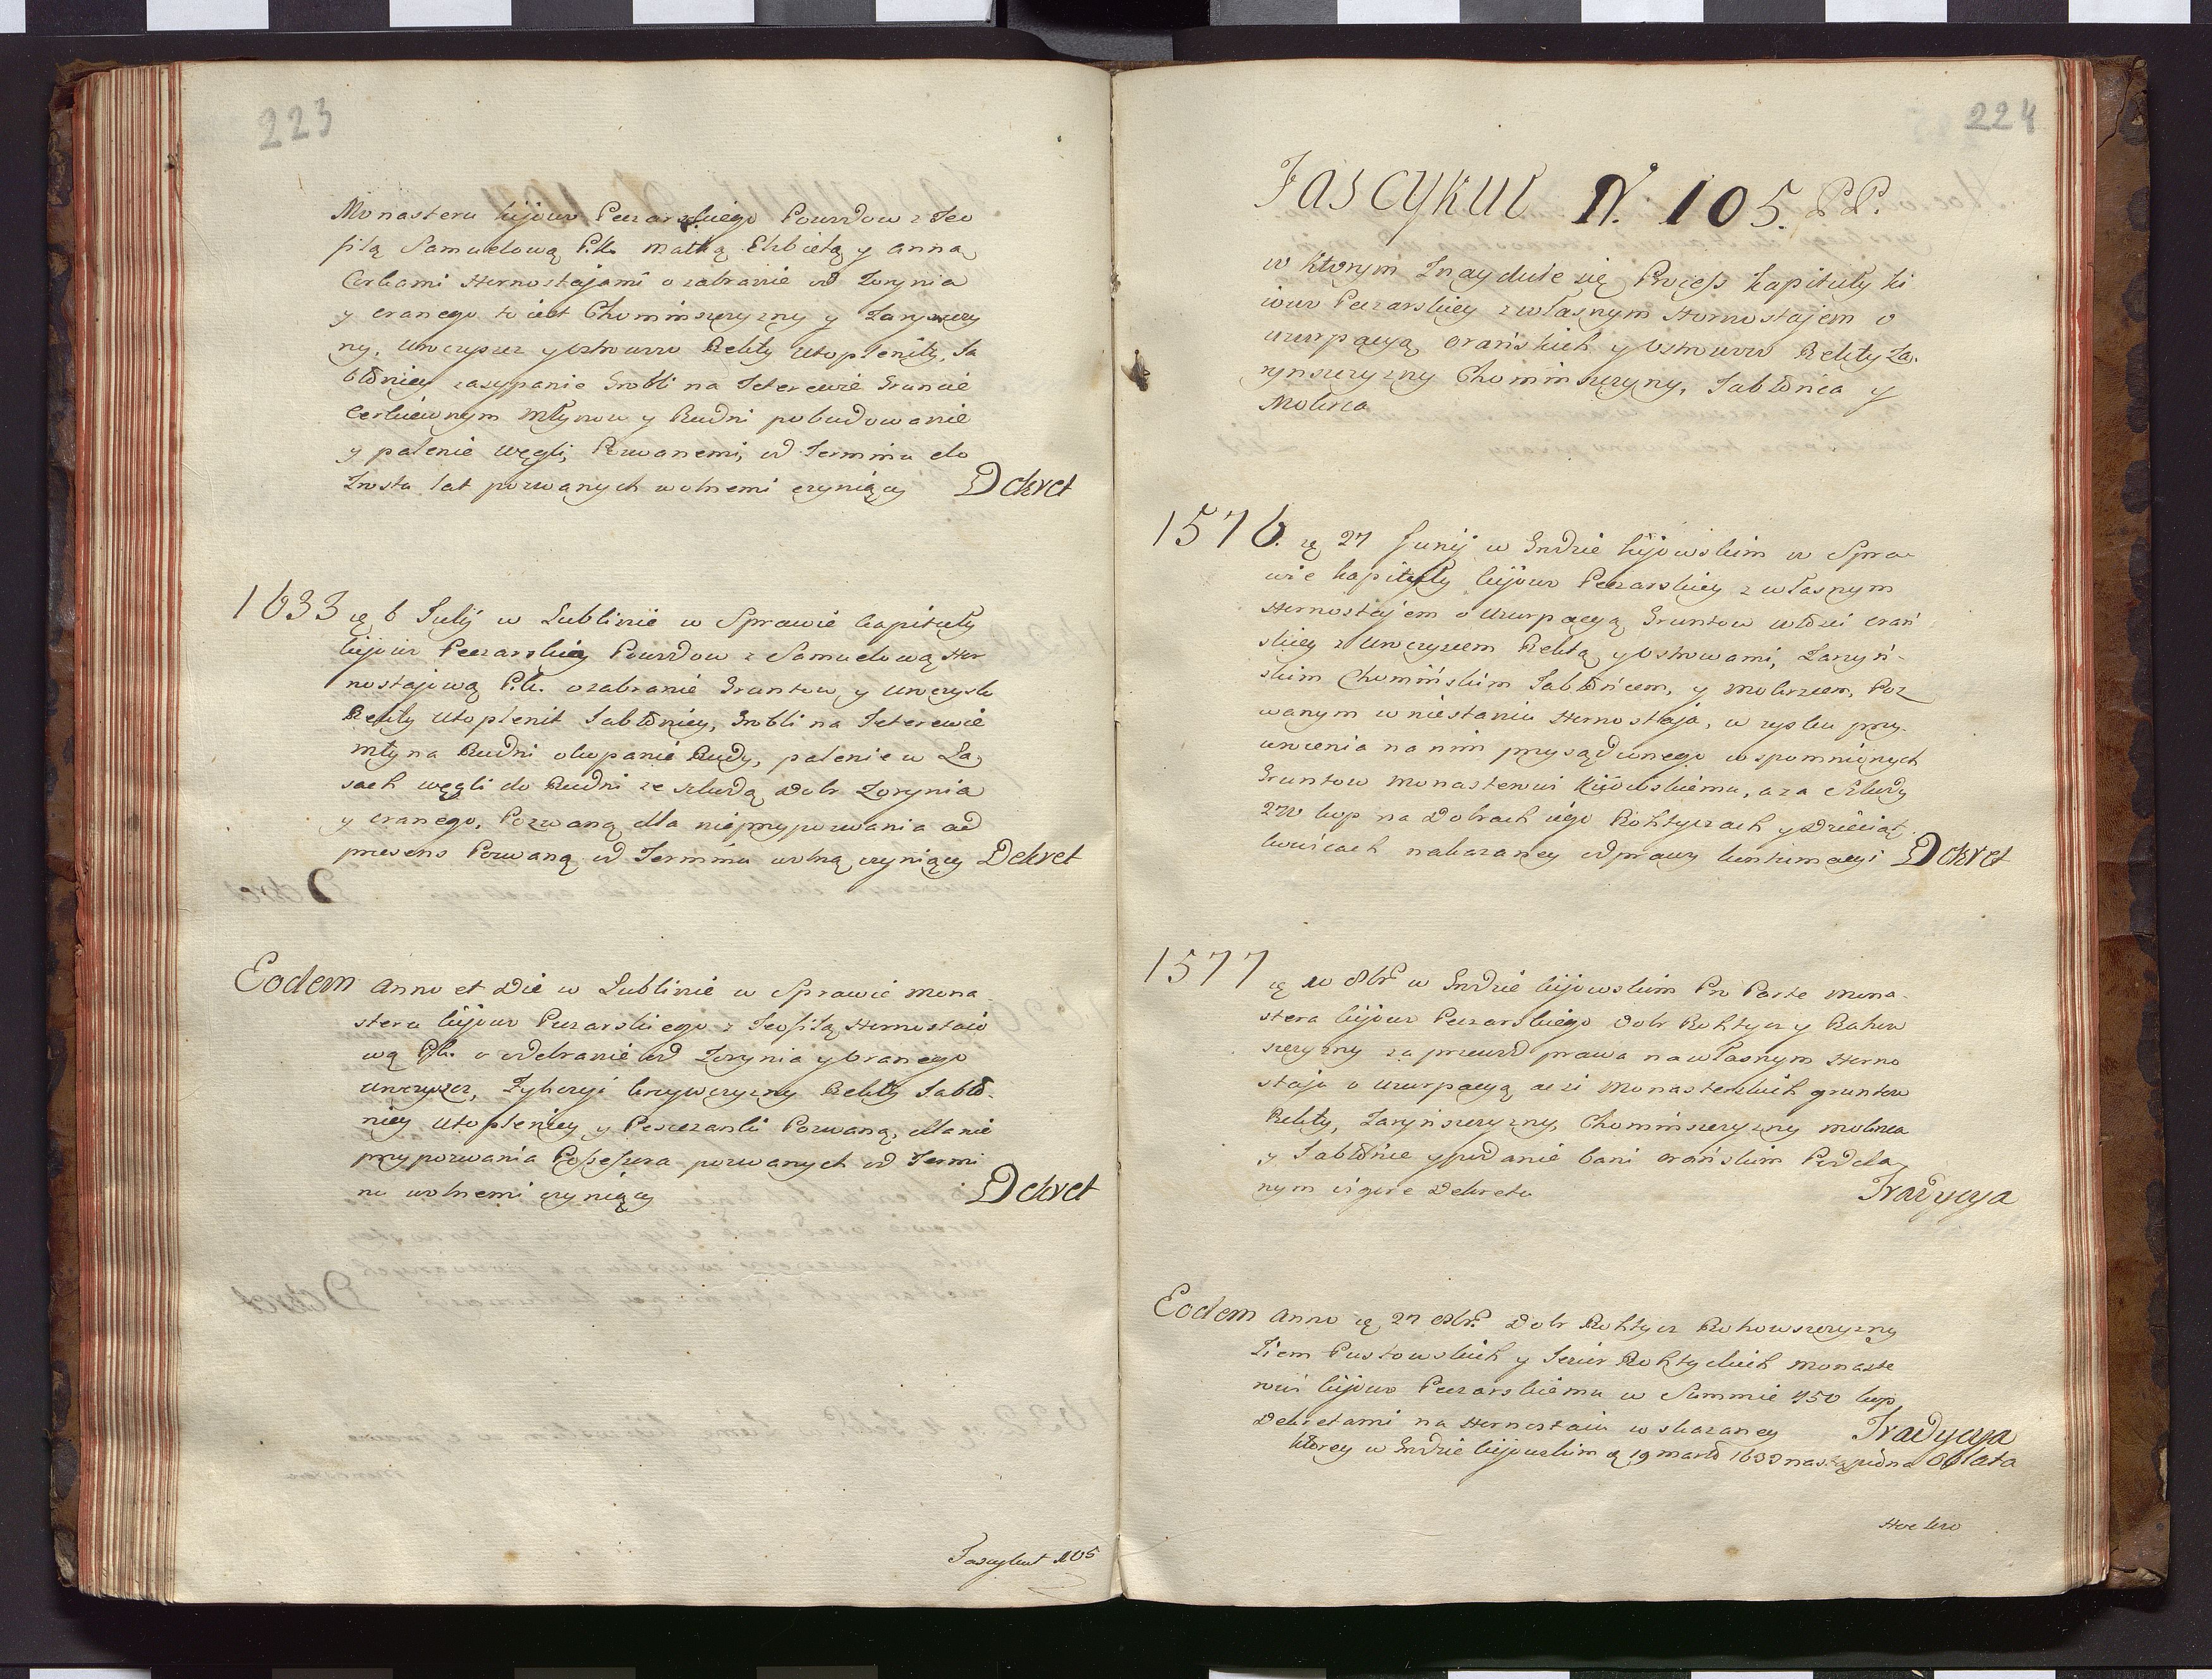 223
Monasteru kijow Peczarskiego Powodow z Teo
filą Samuelową P.K. Matką Elzbietą y Anną
Corkami Hornostajami o zabranie od Zorynia
y Oranego to iest Chominszczyzny y Zarynszczyz
ny, Uroczyszcz y Ostrowow Rekity Utoplenity, Ja
błonicy zasypanie Grobli na Teterewie Gruncie
Cerkiewnym Młynow y Rudni pobudowanie
y palenie węgli, Pozwanemi, od Terminu do
Trosta lat pozwanych wolnemi czyniący Dekret
1633 ię 6 Julij w Lublinie w Sprawie kapituły
kijow Peczarskiey Powodow z Samuelową Hor
nostajową P.K. o zabranie Gruntow y Uroczysk
Rekity Utoplenit Jabłonicy, Grobli na Teterewie
młyna Rudni okopanie Rudy, palenie w La,
sach węgli do Rudni ze szkodą Dobr Zorynia
y Oranego, Pozwaną dla nieprzypozwania ad
presens Pozwaną od Terminu wolną czyniący Dekret
Eodem anno et Die w Lublinie w Sprawie Mona
steru kijow Peczarskiego z Teofilą Hornostaio
wą P.K. o odebranie od Zorynia y Oranego
Uroczyszcz, Rekity Jabło-
nicy Utoplenicy y Pozwaną, dla nie
przypozwania Possessora pozwanych od Termi
nu wolnemi czyniący Dekret
Fascykuł 105
224
Fascykuł N. 105. PP.
w ktorym Znayduie się Process kapituły Ki
iow Peczarskiey z własnym Hornostajem o
uzurpacyą Orańskich y Ostrowow Rekity Za,
rynszczyzny Chominszczyzny, Jabłonca y
Mokrca
1576. ię 27 Junij w Grodzie kijowskim w Spra-
wie kapituły kijow Peczarskiey z własnym
Hornostajem o Uzurpacyą Gruntow włosci Orań
skiey z Uroczyszem Rekitą y Ostrowami, Zaryń-
skim Chomińskim Jabłońcem, y Mokrzcem, Poz
wanym w niestaniu Hornostaja, w zysku przy-
wrocenia na nim przysądzonego wspomnionych
Gruntow Monasterowi Kijowskiemu, a za Szkody
kop na Dobrach iego Rohtyczach y Dziesiąt
kowicach nakazaney odprawy kontumacyi Dekret
1577 ię 10 8br w Grodzie kijowskim Pro Parte Mona-
steru kijow Peczarskiego Dobr Rohtycz y Rohow
szczyzny za przewod prawa na własnym Horno
staju o uzurpacyą Monasterskich gruntow
Rekity, Zaryńszczyzny, Chomińszczyzny Mokrca
y Jabłońca y podanie Orańskim Podda,
nym vigore Dekretu Tradycya
Eodem anno ię 27 8br. Dobr Rohtycz Rohowszczyzny
Ziem Pustowskich y Jezior Rohtyckich Monaste
rowi kijow Peczarskiemu w Summie 450 kop,
Dekretami na Hornostaiu wskazaney Tradycya
ktorey w Grodzie kijowskim ię 19 Marti 1633 nastąpiona Oblata